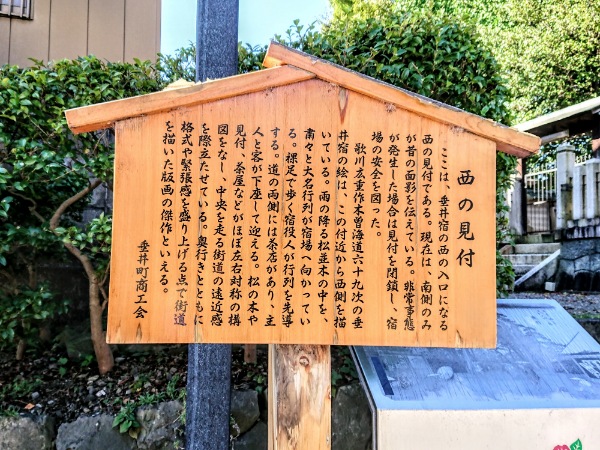 西の見付
ここは、垂井宿の西の入口になる
西の見付である。現在は、南側のみ
が昔の面影を伝えている。非常事態
が発生した場合は見付を閉鎖し、宿
場の安全を図った。
歌川広重作木曽海道六十九次の垂
井宿の絵は、この付近から西側を描
いている。雨の降る松並木の中を、
粛々と大名行列が宿場へ向かってい
る。裸足で歩く宿役人が行列を先導
する。道の両側には茶店があり、主
人と客が下座して迎える。松の木や
見付、茶屋などがほぼ左右対称の構
図をなし、中央を走る街道の遠近感
を際立たせている。奥行きとともに
格式や緊張感を盛り上げる点で街道
を描いた版画の傑作といえる。
垂井町商工会